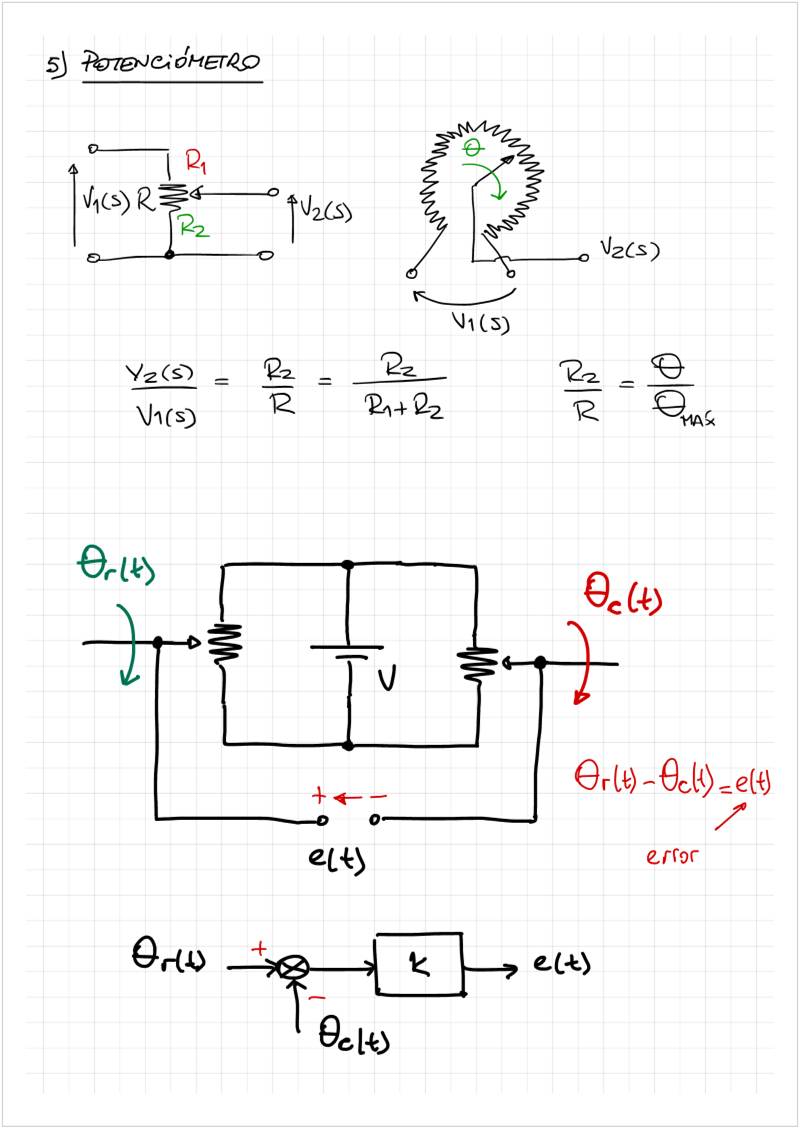 5) POTENCIÓMETRO
R1
V1(s) R
R2
V2(s)
θ
V2(s)
V1(s)
V2(s)/V1(s) = R2/R = R2/(R1+R2)
R2/R = θ/θMÁX
θr(t)
θc(t)
V
θr(t) - θc(t) = e(t)
+ ← -
error
e(t)
θr(t) + K e(t)
-
θc(t)